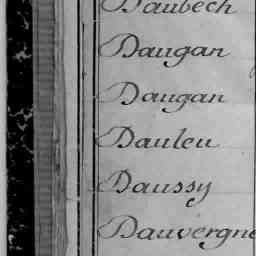 Daubech
Daugan
Daugan
Dauleu
Daussy
Dauvergne